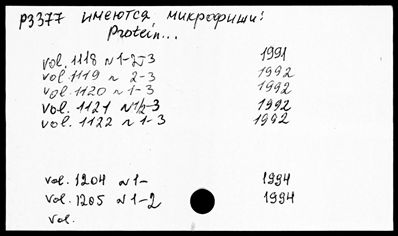 р3377 имеются микрофиши:
Protein...
vol. 1118 N 1-2,3 1991
vol. 1119 N 2-3 1992
vol. 1120 N 1-3 1992
vol. 1121 N 1/2-3 1992
vol. 1122 N 1-3 1992
vol. 1204 N 1- 1994
vol. 1205 N 1-2 1994
vol.